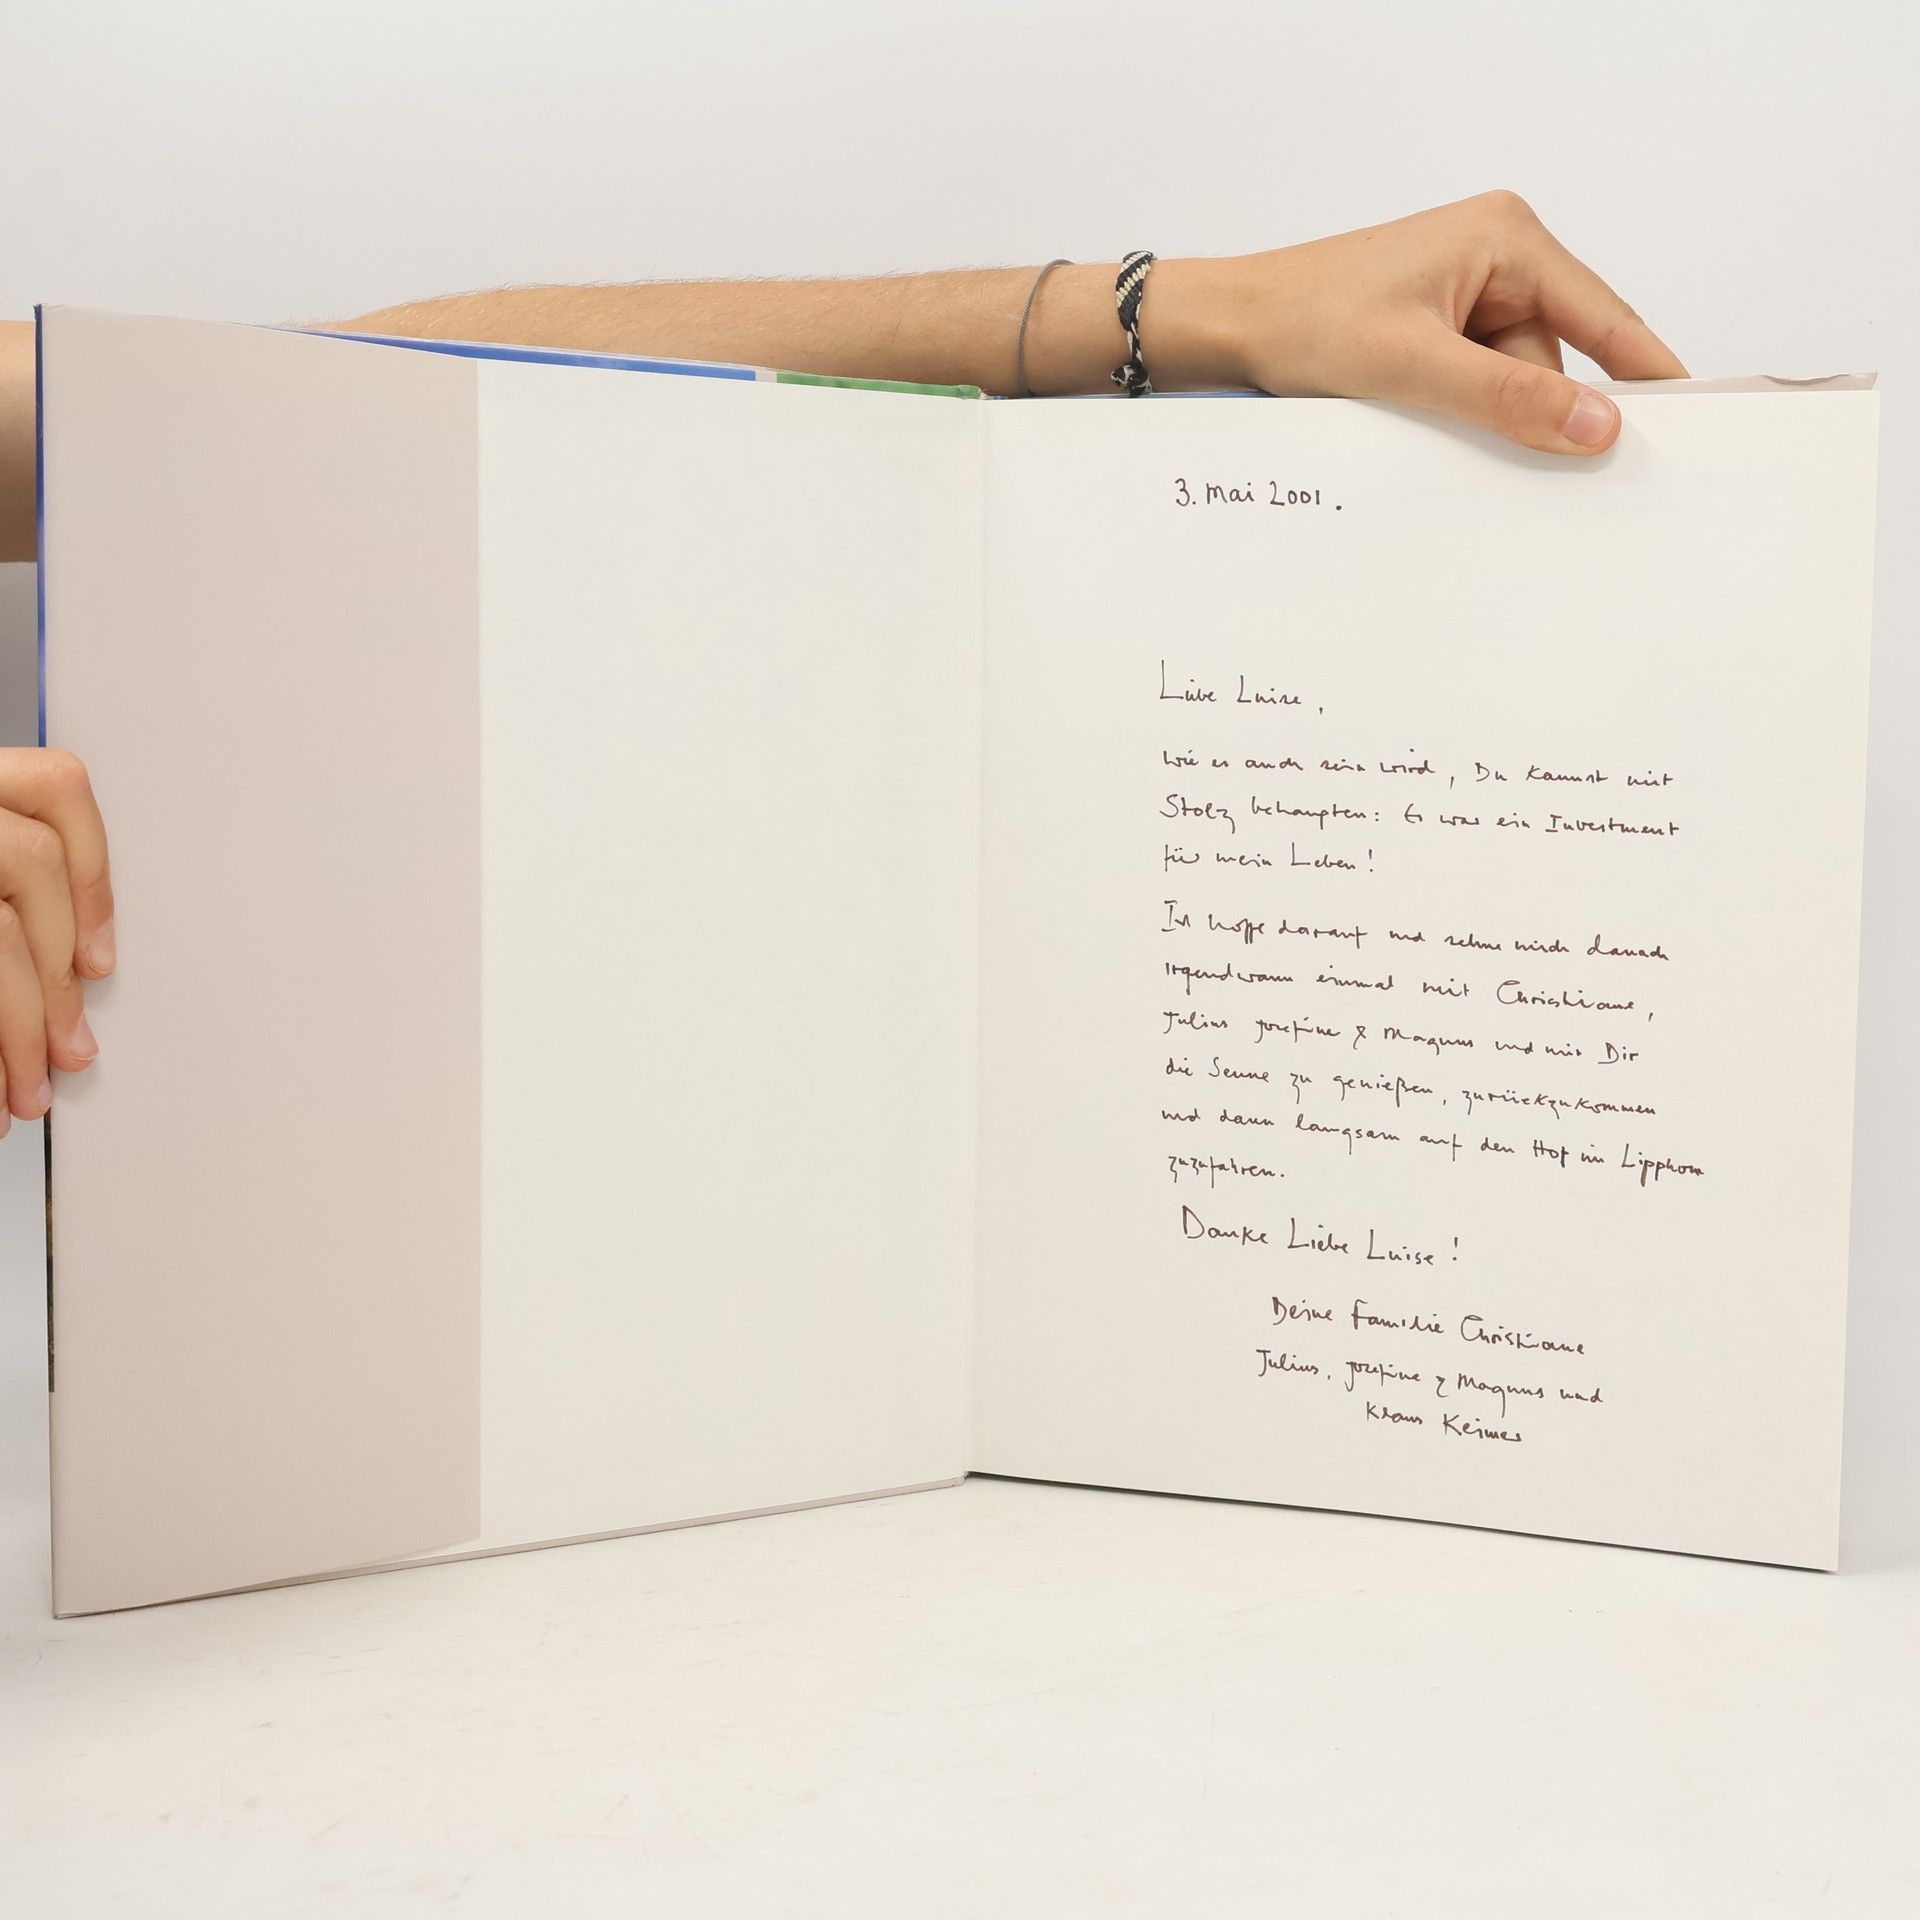 3. Mai 2001.
Liebe Luise,
wie es auch sein wird, Du kannst mit
Stolz behaupten: Es war ein Investment
für mein Leben!
Ich hoffe darauf und sehne mich danach
irgendwann einmal mit Christiane,
Julius Josefine & Magnus und mit Dir
die Senne zu genießen, zurückzukommen
und dann langsam auf den Hof in
zuzufahren.
Danke Liebe Luise!
Deine Familie Christiane
Julius, Josefine & Magnus und
Klaus Keimer